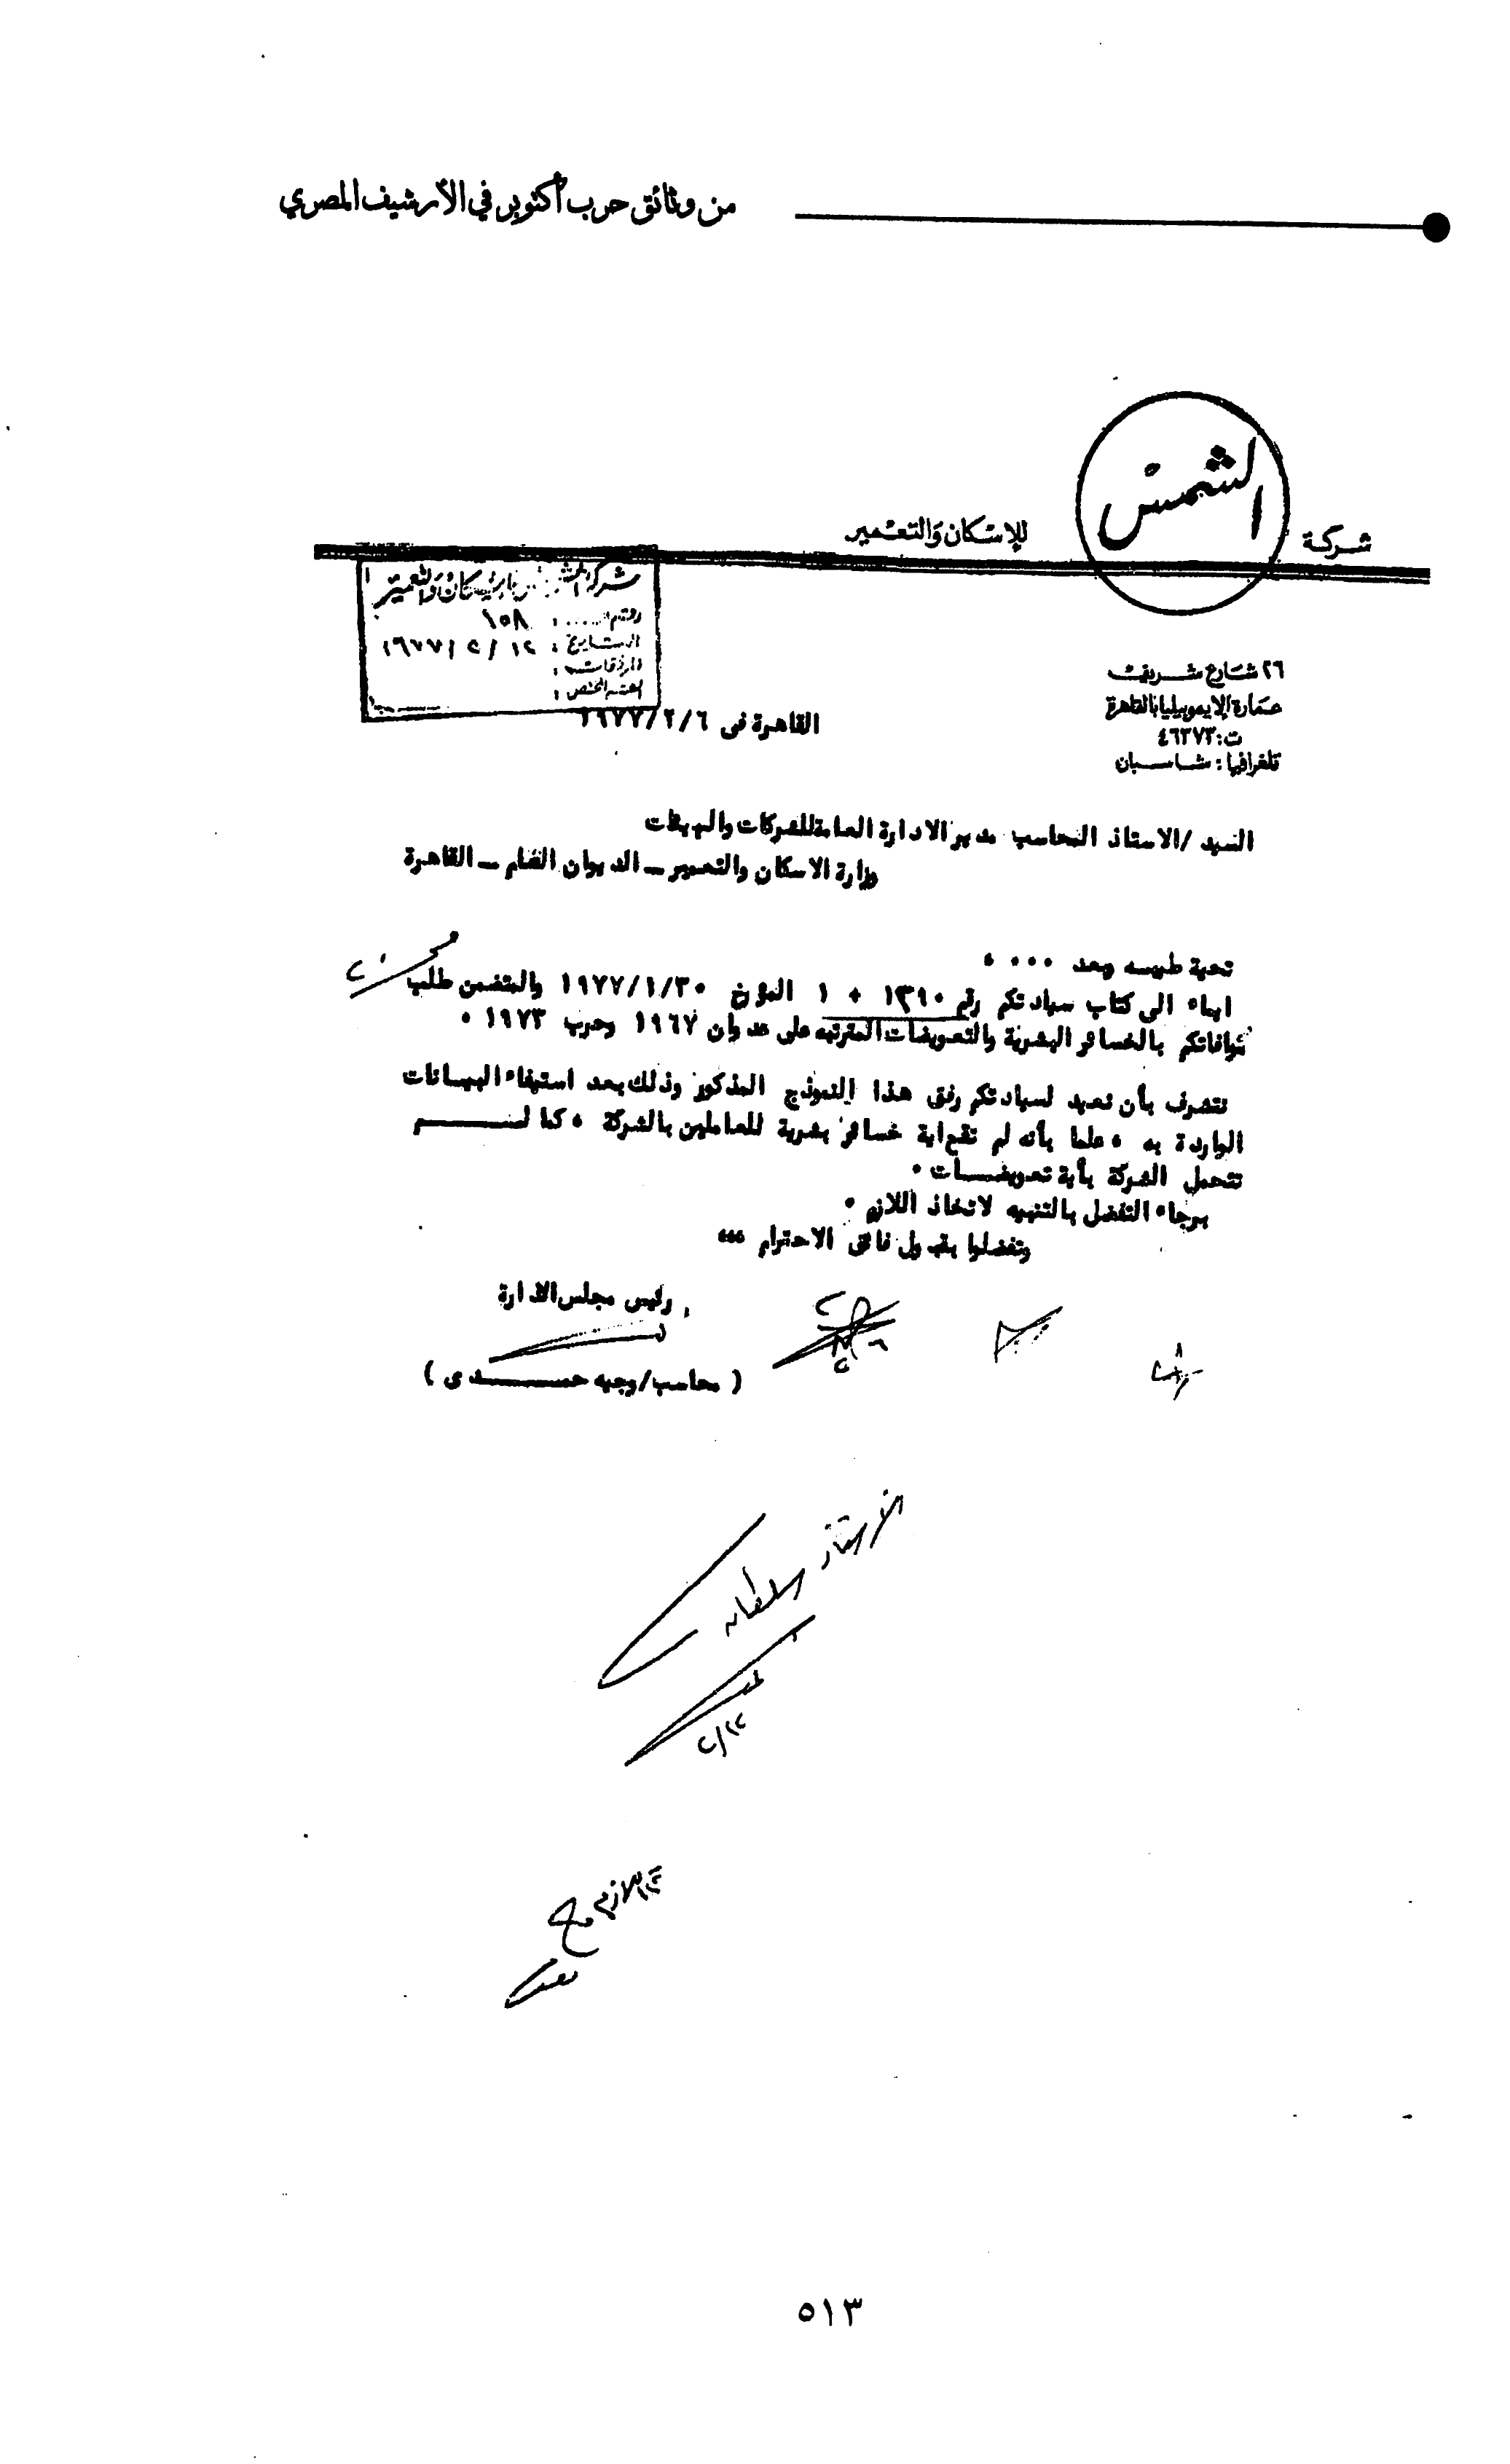 من وثائق حرب أكتوبر في الأرشيف المصري
شركة الشمس للإسكان والتعمير
شركة الشمس للإسكان والتعمير
رقم : ١٥٨
التاريخ : ١٢ / ٢ / ١٩٧٧
المرفقات :
القسم المختص :
٢٦ شارع شريف
عمارة الإيموبيليا بالقاهرة
ت : ٤٦٢٧٣
تلغرافيا : شاسبان
القاهرة فى ١٩٧٧/٢/٦
السيد /الاستاذ المحاسب مدير الادارة العامة للشركات والهيئات
وزارة الاسكان والتعمير ـ الديوان العام ـ القاهرة
تحية طيبه وبعد ٠٠٠٠
ايماء الى كتاب سيادتكم رقم ١٣٩٠ + ١ المؤرخ ١٩٧٧/١/٣٠ والمتضمن طلب
موافاتكم بالخسائر البشرية والتعويضات المترتبه على عدوان ١٩٦٧ وحرب ١٩٧٣ ٠
نتشرف بأن نعيد لسيادتكم رفق هذا النموذج المذكور وذلك بعد استيفاء البيانات
الواردة به ، علما بأنه لم تقع اية خسائر بشرية للعاملين بالشركة ، كما لـــــم
تتحمل الشركة بأية تعويضــات ٠
برجاء التفضل بالتنبيه لاتخاذ اللازم ٠
وتفضلوا بقبول فائق الاحترام ،،،
رئيس مجلس الادارة
( محاسب/وجيه حمـــــدى )
الأستاذ
٢/١٢
٥١٣